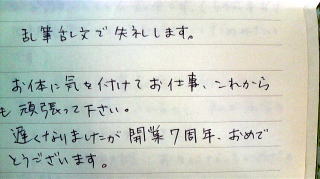 乱筆乱文で失礼します。
お体に気を付けてお仕事、これから
も頑張って下さい。
遅くなりましたが開業7周年、おめで
とうございます。